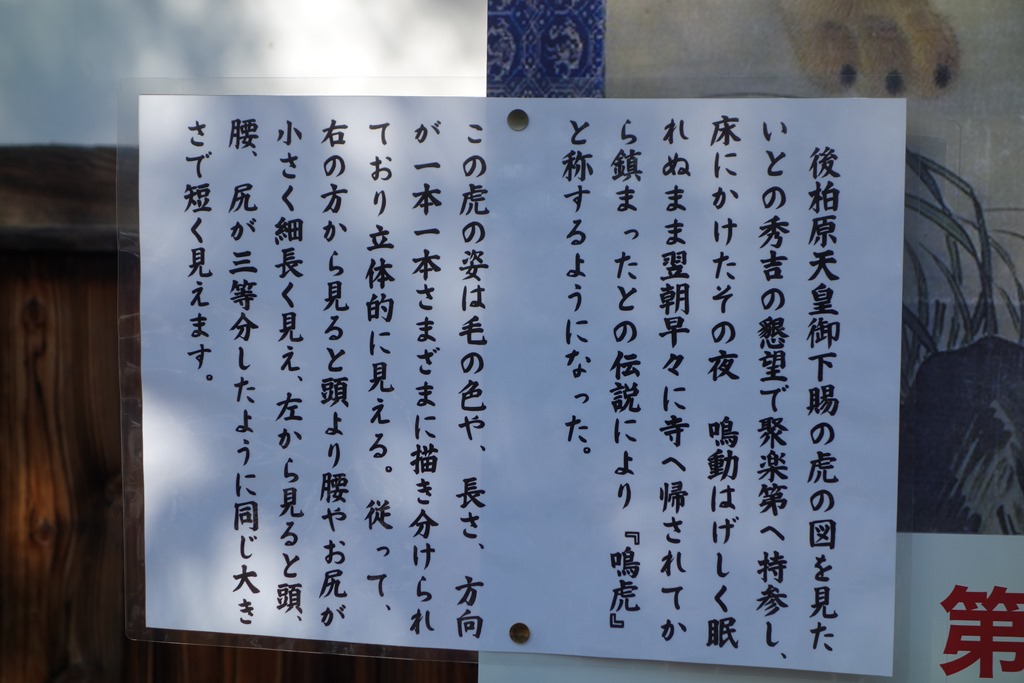 後柏原天皇御下賜の虎の図を見た
いとの秀吉の懇望で聚楽第へ持参し、
床にかけたその夜　鳴動はげしく眠
れぬまま翌朝早々に寺へ帰されてか
ら鎮まったとの伝説により『鳴虎』
と称するようになった。
この虎の姿は毛の色や、長さ、方向
が一本一本さまざまに描き分けられ
ており立体的に見える。従って、
右の方から見ると頭より腰やお尻が
小さく細長く見え、左から見ると、頭、
腰、尻が三等分したように同じ大き
さで短く見えます。
第